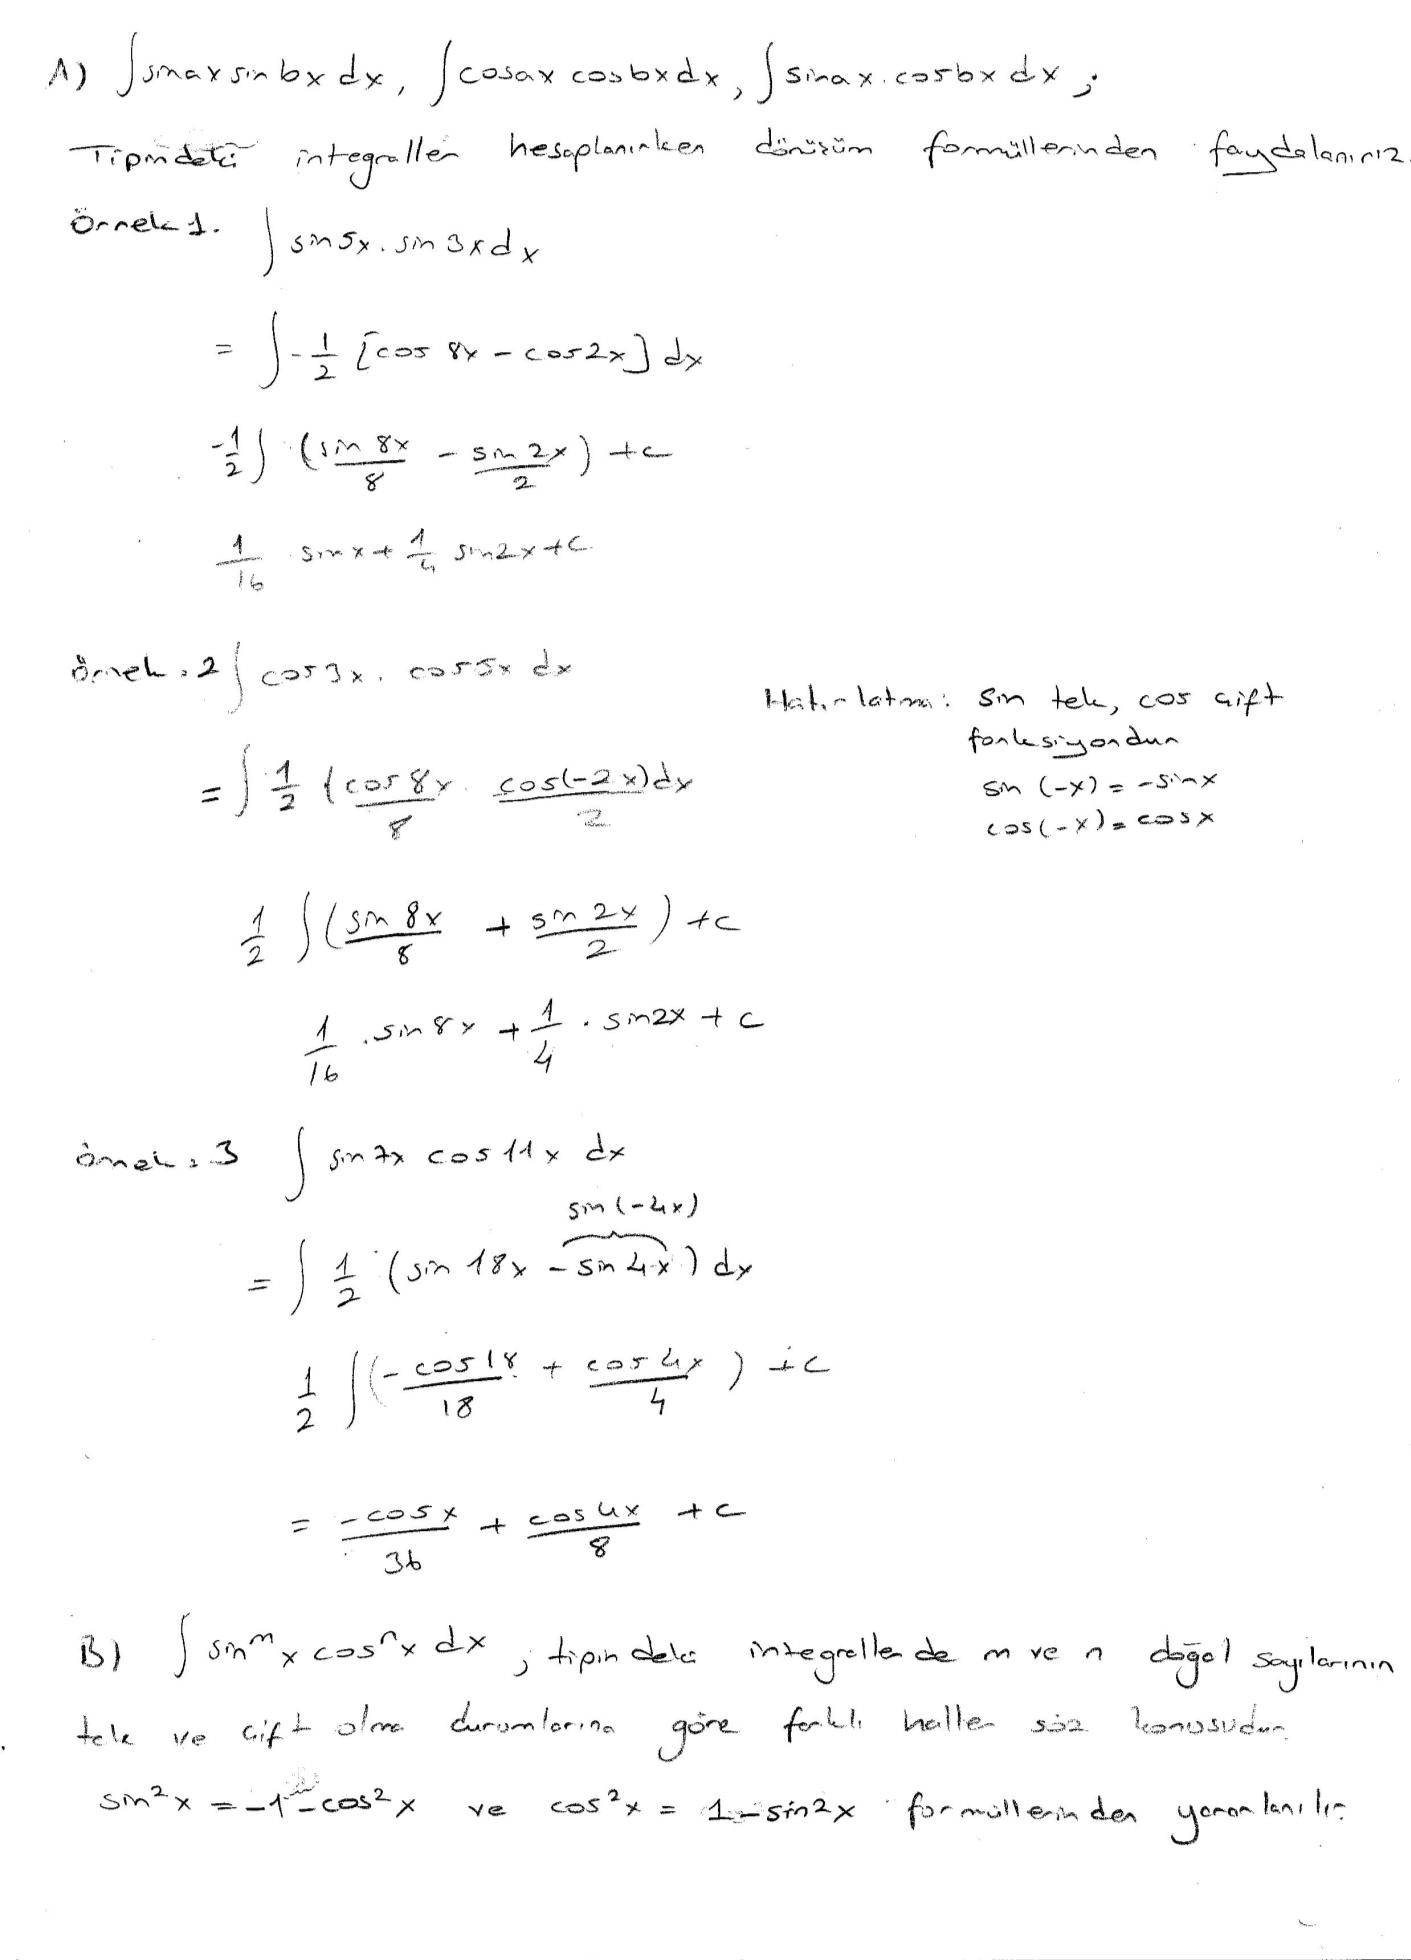 A) ∫sinax sin bx dx, ∫cosax cosbx dx, ∫sinax.cosbx dx;
Tipindeki integraller hesaplanırken dönüşüm formüllerinden faydalanırız.
Örnek 1. ∫ sin5x . sin 3x dx
= ∫ -1/2 [cos 8x - cos2x] dx
-1/2 ∫ (sin 8x/8 - sin 2x/2) + c
1/16 sinx + 1/4 sin2x + C.
örnek : 2 ∫ cos3x . cos5x dx
Hatırlatma : sin tek, cos çift
fonksiyondur
sin (-x) = -sinx
cos(-x) = cosx
= ∫ 1/2 (cos 8x/8 cos(-2x)/2) dx
1/2 ∫ (sin 8x/8 + sin 2x/2) + c
1/16 . sin8x + 1/4 . sin2x + c
örnek : 3 ∫ sin 7x cos 11x dx
sin (-4x)
= ∫ 1/2 (sin 18x - sin 4x) dx
1/2 ∫ (-cos18/18 + cos 4x/4) + c
= -cosx/36 + cos4x/8 + c
B) ∫ sinᵐx cosⁿx dx ; tipindeki integrallerde m ve n doğal sayılarının
tek ve çift olma durumlarına göre farklı haller söz konusudur.
sin²x = -1 - cos²x ve cos²x = 1 - sin2x formüllerinden yararlanılır